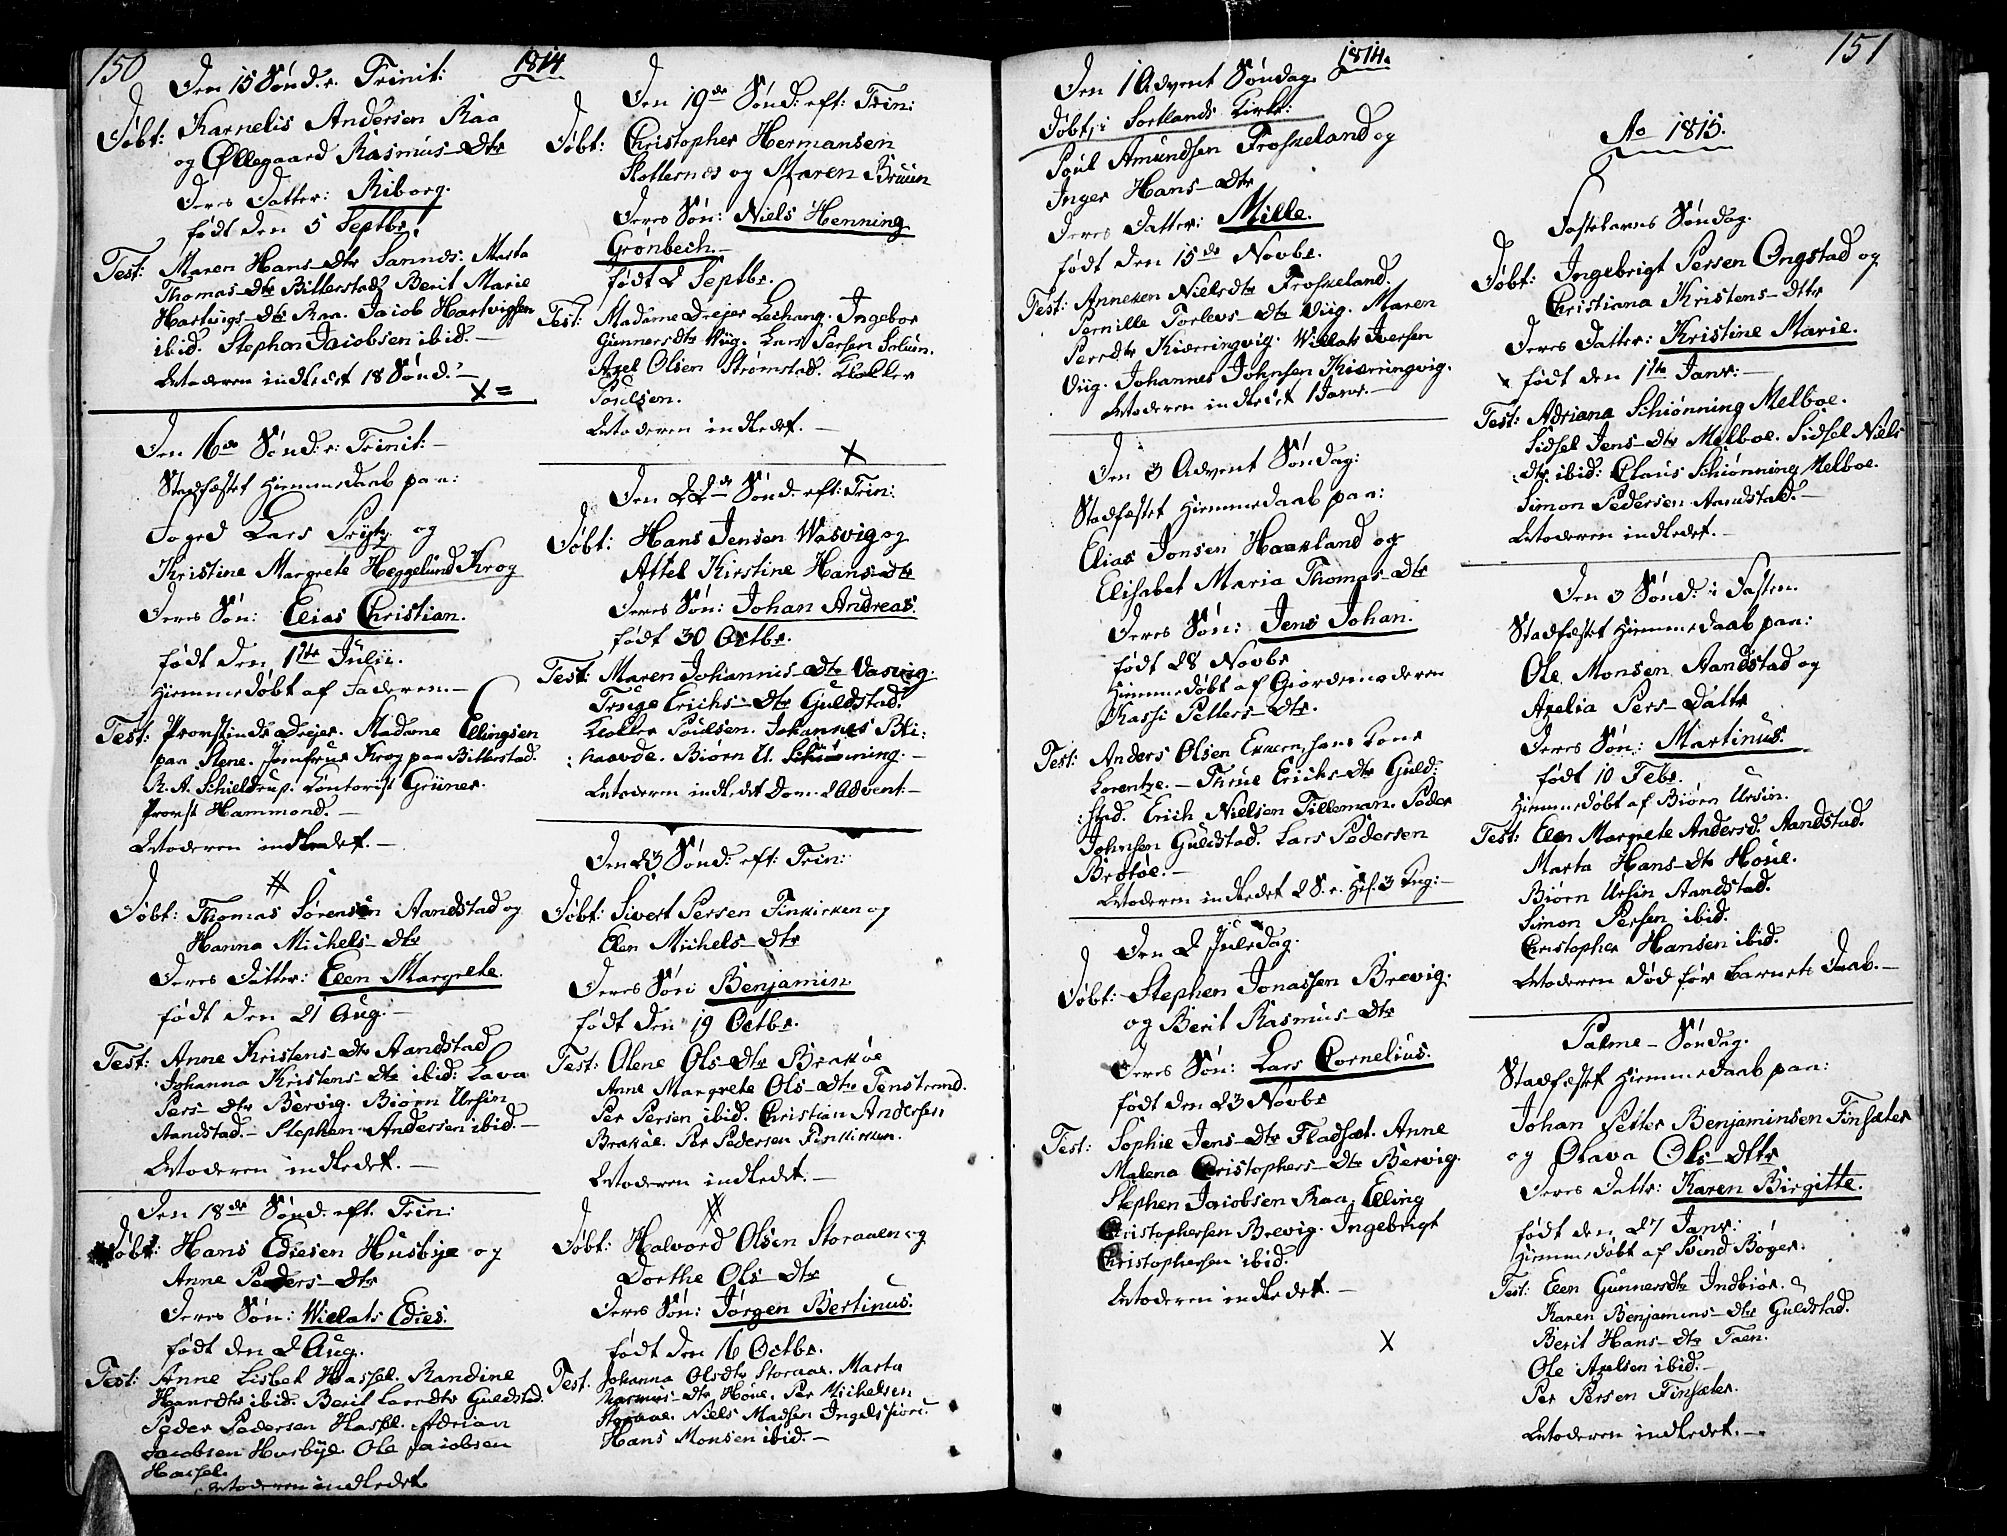 150
1814
Den 15 Sønd. e. Trinit:
Døbt: Karnelis Andersen Raa
og Øllegaard Rasmus-Dtr
Deres Datter: Riborg.
født den 5 Septbr
Test: Maren Hans-Dtr Sannds. Marta
Thomas-Dtr Bitterstad, Berit Marie
Hartvigs-Dtr Raa. Jacob Hartvigsen
ibid. Stephen Jacobsen ibid. —
Moderen indledet 18 Sønd. —
X =
Den 16de Sønd: e: Trinit: —
Stadfæstet Hiemmedaab paa:
Foged Lars og
Kristine Margrete Heggelund Krog
Deres Søn: Elias Christian.
født den 1ste Julii.
Hiemmedøbt af Faderen. —
Test: Provstinde Drejer. Madame Ellingsen
paa Rene. Jomfrue Krog paa Bitterstad.
R. A. Schieldrup. Contorist Grüner.
Provst Hammond. —
Moderen indledet. —
#
Døbt: Thomas Sørensen Aandstad og
Hanna Michels-Dtr
Deres Datter: Elen Margrete.
født den 21 Aug. —
Test: Anne Kristens-Dtr Aandstad
Johanna Kristens-Dtr ibid: Lava
Pers-Dtr Bervig. Biørn Ursin
Aandstad. — Stephen Andersen ibid. —
Moderen indledet. —
Den 18de Sønd. eft. Trin:
Døbt: Hans Ediesen Husbye og
Anne Peders-Dtr
Deres Søn: Wielats Edies.
født den 2 Aug.
Test: Anne Lisbet Hassel. Randine
Hansdtr ibid. Berit Larsdtr Guldstad.
Peder Pedersen Hassel. Adrian
Jacobsen Husbye. Ole Jacobsen
Hassel.
Moderen indledet.
Den 19de Sønd: eft: Trin:
Døbt: Christopher Hermansen
Slotternes og Maren Bruun
Deres Søn: Niels Henning
Grønbech. —
født 2 Septbr.
Test: Madame Drejer Lechang. Ingebor
Gunnersdtr Viig. Lars Persen Solum.
Axel Olsen Strømstad. Kloller
Poulsen.
Moderen indledet. —
X
Den 22de Sønd. eft: Trin:
Døbt: Hans Jensen Wasvig og
Attel Kirstine Hans-Dtr
Deres Søn: Johan Andreas.
født 30 Octbr.
Test: Maren Johannis-Dtr Vasvig.
Truge Erichs-Dtr Guldstad.
Kloller Poulsen. Johannes Bli:
:haavde. Biørn U. Schiønning. —
Moderen indledet Dom. 2 Advent —
Den 23 Sønd: eft: Trin:
Døbt: Sivert Persen Finkirken og
Elen Michels-Dtr
Deres Søn: Benjamin.
født den 19 Octbr.
Test: Olene Ols-Dtr Brakøe
Anne Margrete Ols-Dtr Tenstrand.
Per Persen ibid. Christian Andersen
Brakøe. Per Pedersen Finkirken.
Moderen indledet. —
#
Døbt: Halvord Olsen Storaaen og
Dorthe Ols-Dtr
Deres Søn: Jørgen Bertinus.
født den 16 Octbr.
Test. Johanna Olsdtr Storaae. Marta
Rasmus-Dtr Houe. Per Michelsen
Storaae. Niels Madsen Ingelsfiord.
Hans Monsen ibid. —
1814.
Den 1 Advent Søndag.
Døbt i Sortlands Kirke:
Poul Amundsen Froskeland og
Inger Hans-Dtr
Deres Datter: Mille.
født den 15de Novbr.
Test: Anneken Nielsdtr Froskeland.
Pernille Torlevs-Dtr Viig. Maren
Persdtr Kiærringvig. Wielats Iversen
Viig. Johannes Johnsen Kiærringvig.
Moderen indledet 1 Janr. —
Den 3 Advent Søndag:
Stadfæstet Hiemmedaab paa:
Elias Jonsen Haakland og
Elisabet Maria Thomas-Dtr
Deres Søn: Jens Johan.
født 28 Novbr
Hiemmedøbt af Giordemoderen
Kassi Petters-Dtr.
Test: Anders Olsen hans Kone
Lorentze. — Thrue Erichs-Dtr Guld:
:stad. Erich Nielsen Tilleman. Peder
Johnsen Guldstad. Lars Pedersen
Brotøe. —
Moderen indledet 2 S. e. H. 3 Kng: —
Den 2 Juledag.
Døbt: Stephen Jonassen Brevig.
og Berit Rasmus-Dtr
Deres Søn: Lars Cornelius.
født den 23 Novbr
Test: Sophie Jens-Dtr Fladsæt. Anne
Malena Christophers-Dtr Bervig.
Stephen Jacobsen Raa. Elling
Christophersen Brevig. Ingebrigt
Christophersen ibid.
Moderen indledet. —
X
151
Ao 1815.
Fastelavns Søndag.
Døbt: Ingebrigt Persen Ongstad og
Christiana Kristens-Dttr
Deres Datter: Kristine Marie.
x født den 1ste Janr: —
Test: Adriana Schiønning Melboe.
Sidsel Jens-Dtr Melboe. Sidsel Niels
Dtr ibid: Claus Schiønning Melboe.
Simon Pedersen Aandstad. —
Moderen indledet. —
Den 3 Sønd: i Fasten.
Stadfæstet Hiemmedaab paa:
Ole Monsen Aandstad og
Axelia Pers-Dattr
Deres Søn: Martinus.
født 10 Febr.
Hiemmedøbt af Biørn Ursin.
Test: Elen Margrete Andersd. Aandstad.
Marta Hans-Dtr Houe.
Biørn Ursin Aandstad.
Simon Persen ibid.
Christopher Hansen ibid.
Moderen død før Barnets Daab. —
Palme-Søndag.
Stadfæstet Hiemmedaab paa:
Johan Petter Benjaminsen Finsæter
og Olava Ols-Dttr
Deres Dattr: Karen Birgitte.
født den 27 Janr:
Hiemmedøbt af Svend Boger.
Test: Elen Gunnersdtr Indbiør.
Karen Benjamins-Dtr Guldstad.
Berit Hans-Dtr Taen.
Ole Axelsen ibid: —
Per Persen Finsæter.
Moderen indledet. —